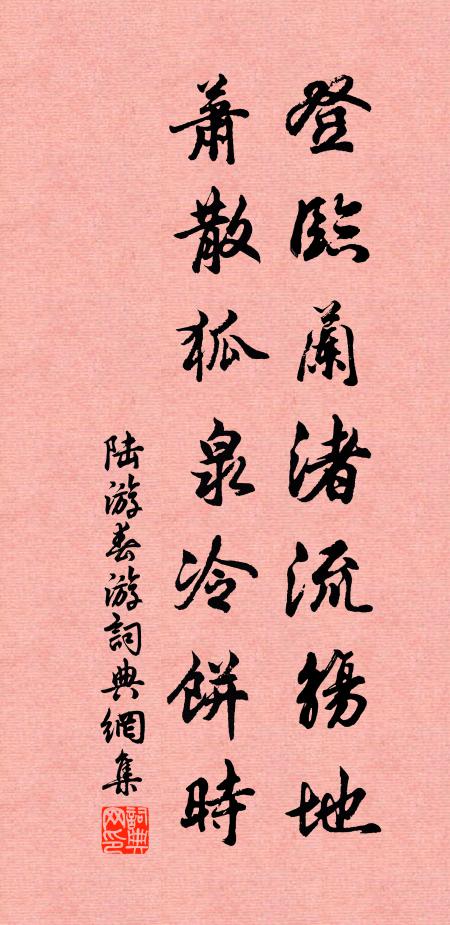 登臨蘭渚流觴地
蕭散狐泉冷餅時
陆游春游詞典網集
詞典网印